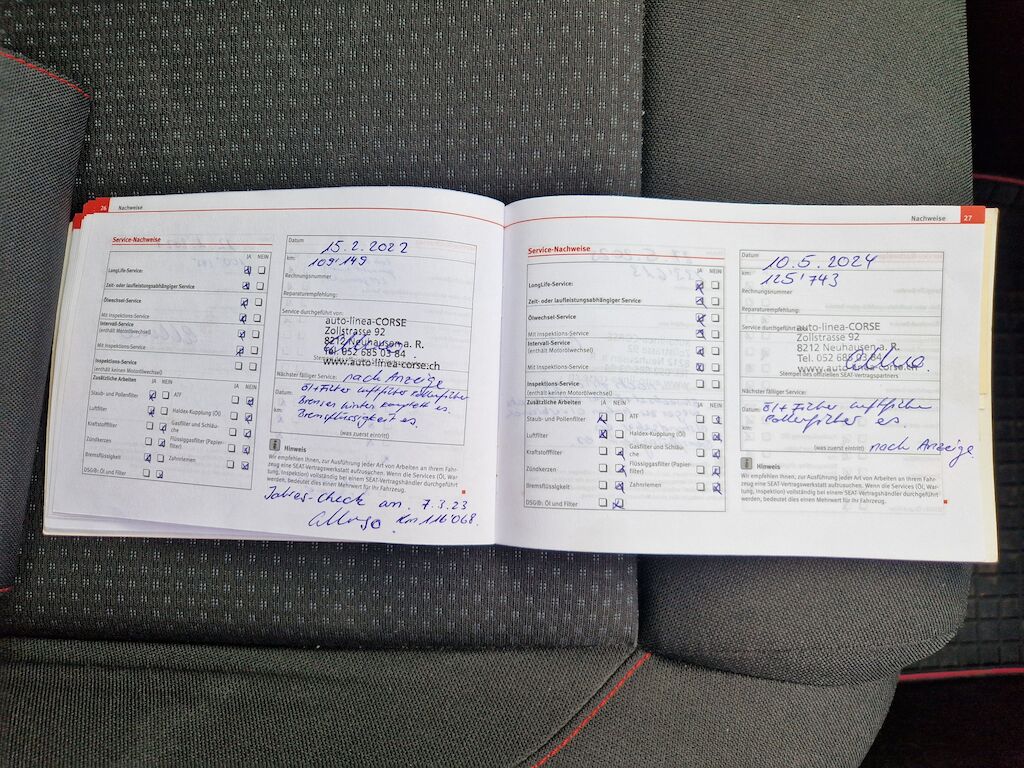 26 Nachweise
Service-Nachweise
JA NEIN
LongLife-Service:
Zeit- oder laufleistungsabhängiger Service
Ölwechsel-Service
Mit Inspektions-Service
Intervall-Service
(enthält Motorölwechsel)
Mit Inspektions-Service
Inspektions-Service
(enthält keinen Motorölwechsel)
Zusätzliche Arbeiten JA NEIN JA NEIN
Staub- und Pollenfilter ATF
Luftfilter Haldex-Kupplung (Öl)
Kraftstofffilter Gasfilter und Schläu-
che
Zündkerzen Flüssiggasfilter (Papier-
filter)
Bremsflüssigkeit Zahnriemen
DSG®: Öl und Filter
Datum 15.2.2022
km: 109'149
Rechnungsnummer
Reparaturempfehlung:
Service durchgeführt von:
auto-linea-CORSE
Zollstrasse 92
8212 Neuhausen a. R.
Tel. 052 685 03 84
www.auto-linea-corse.ch
Nächster fälliger Service: nach Anzeige
Datum: Öl+Filter Luftfilter Pollenfilter
Bremsen hinten komplett es.
km: Bremsflüssigkeit es.
(was zuerst eintritt)
Hinweis
Wir empfehlen Ihnen, zur Ausführung jeder Art von Arbeiten an Ihrem Fahr-
zeug eine SEAT-Vertragswerkstatt aufzusuchen. Wenn die Services (Öl, War-
tung, Inspektion) vollständig bei einem SEAT-Vertragshändler durchgeführt
werden, bedeutet dies einen Mehrwert für Ihr Fahrzeug.
Jahres-Check am. 7.3.23
Km 116'068.
Nachweise 27
Service-Nachweise
JA NEIN
LongLife-Service:
Zeit- oder laufleistungsabhängiger Service
Ölwechsel-Service
Mit Inspektions-Service
Intervall-Service
(enthält Motorölwechsel)
Mit Inspektions-Service
Inspektions-Service
(enthält keinen Motorölwechsel)
Zusätzliche Arbeiten JA NEIN JA NEIN
Staub- und Pollenfilter ATF
Luftfilter Haldex-Kupplung (Öl)
Kraftstofffilter Gasfilter und Schläu-
che
Zündkerzen Flüssiggasfilter (Papier-
filter)
Bremsflüssigkeit Zahnriemen
DSG®: Öl und Filter
Datum 10.5.2024
km: 125'743
Rechnungsnummer
Reparaturempfehlung:
Service durchgeführt
auto-linea-CORSE
Zollstrasse 92
8212 Neuhausen a. R.
Tel. 052 685 03 84
www.auto-linea-corse.ch
Stempel des offiziellen SEAT-Vertragspartners
Nächster fälliger Service:
Datum: Öl+Filter Luftfilter
Pollenfilter es.
km:
(was zuerst eintritt) nach Anzeige
Hinweis
Wir empfehlen Ihnen, zur Ausführung jeder Art von Arbeiten an Ihrem Fahr-
zeug eine SEAT-Vertragswerkstatt aufzusuchen. Wenn die Services (Öl, War-
tung, Inspektion) vollständig bei einem SEAT-Vertragshändler durchgeführt
werden, bedeutet dies einen Mehrwert für Ihr Fahrzeug.